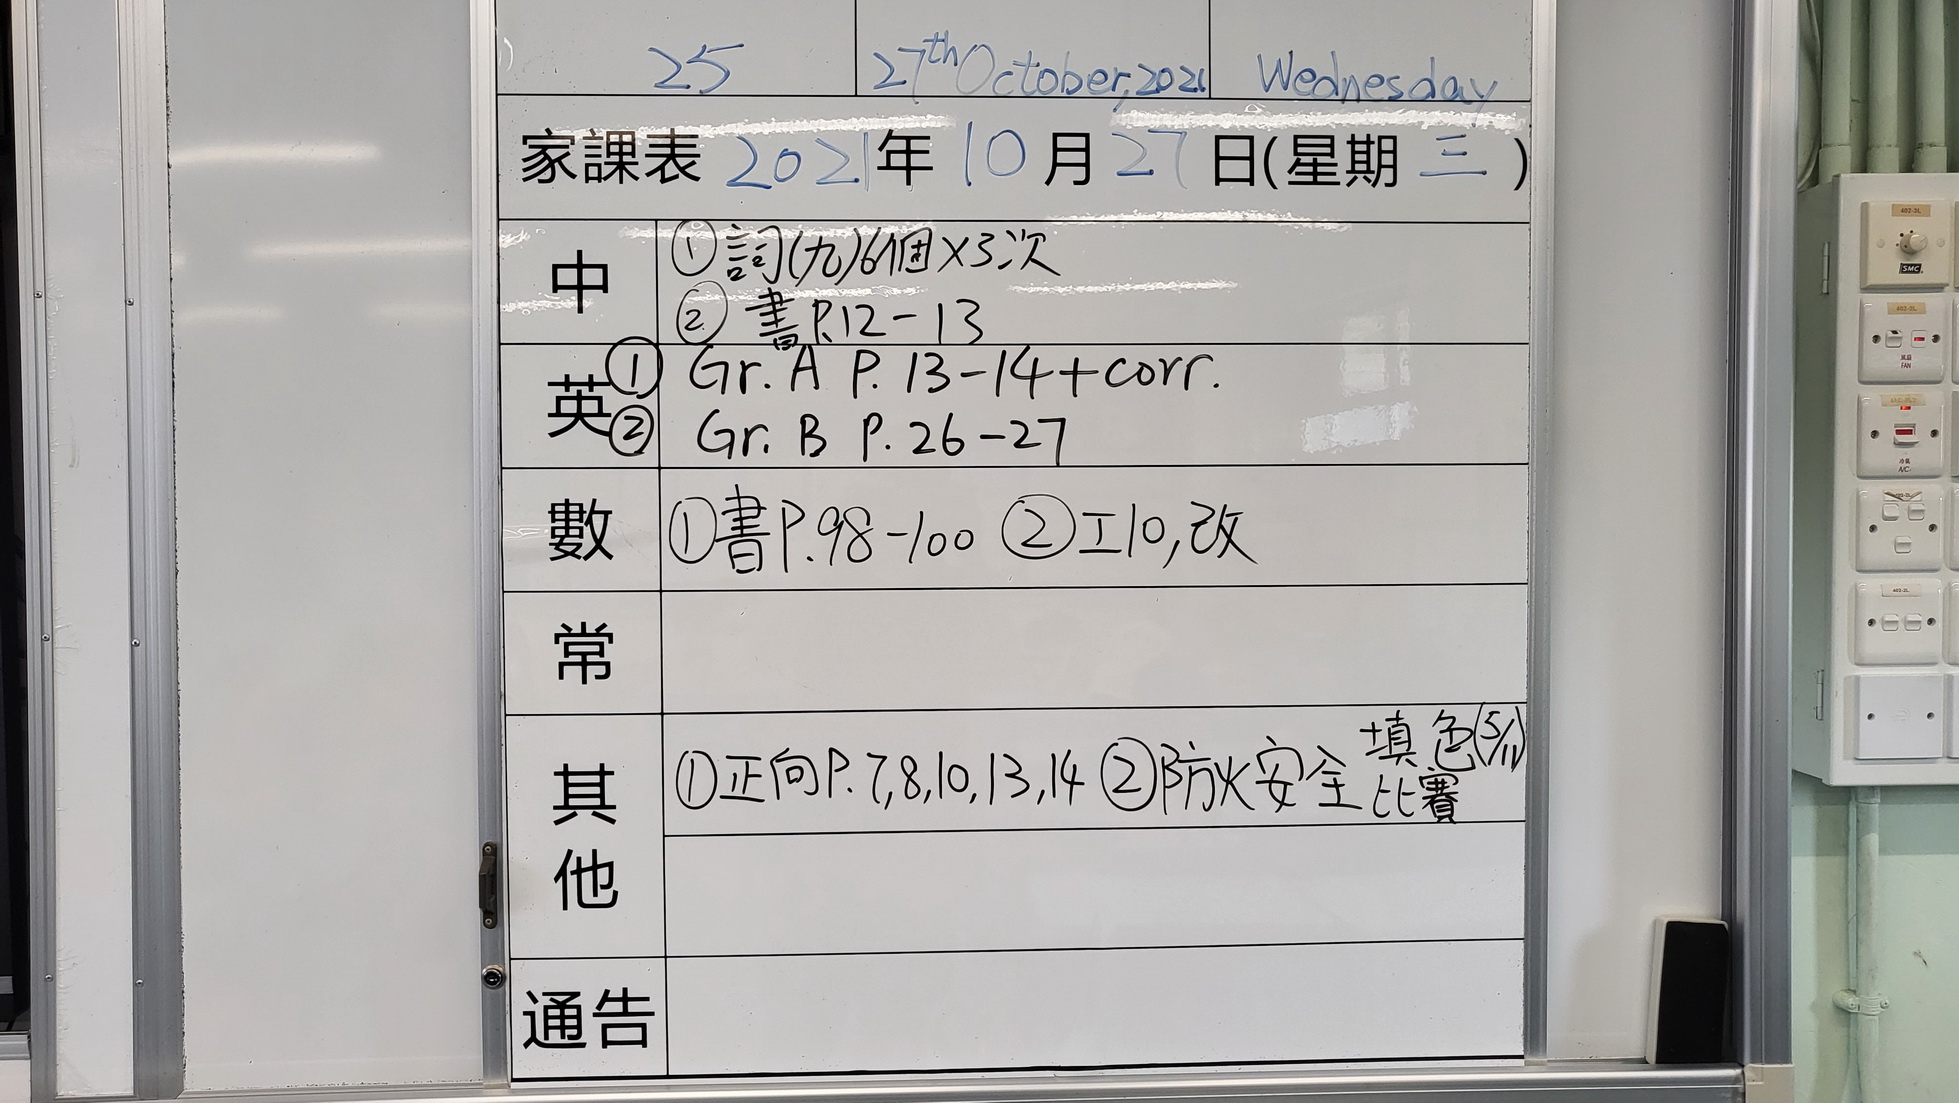 25 27th October, 2021 Wednesday
家課表 2021年 10月 27日(星期 三 )
中
① 詞(九)6個×3次
② 書P.12-13
英
① Gr. A P. 13-14+corr.
② Gr. B P. 26-27
數 ①書P.98-100 ②工10,改
常
其他
①正向P.7,8,10,13,14 ②防火安全 填色(5/11)
比賽
通告
402-3L
SMC
402-5L
風扇
FAN
冷氣
A/C
402-2L